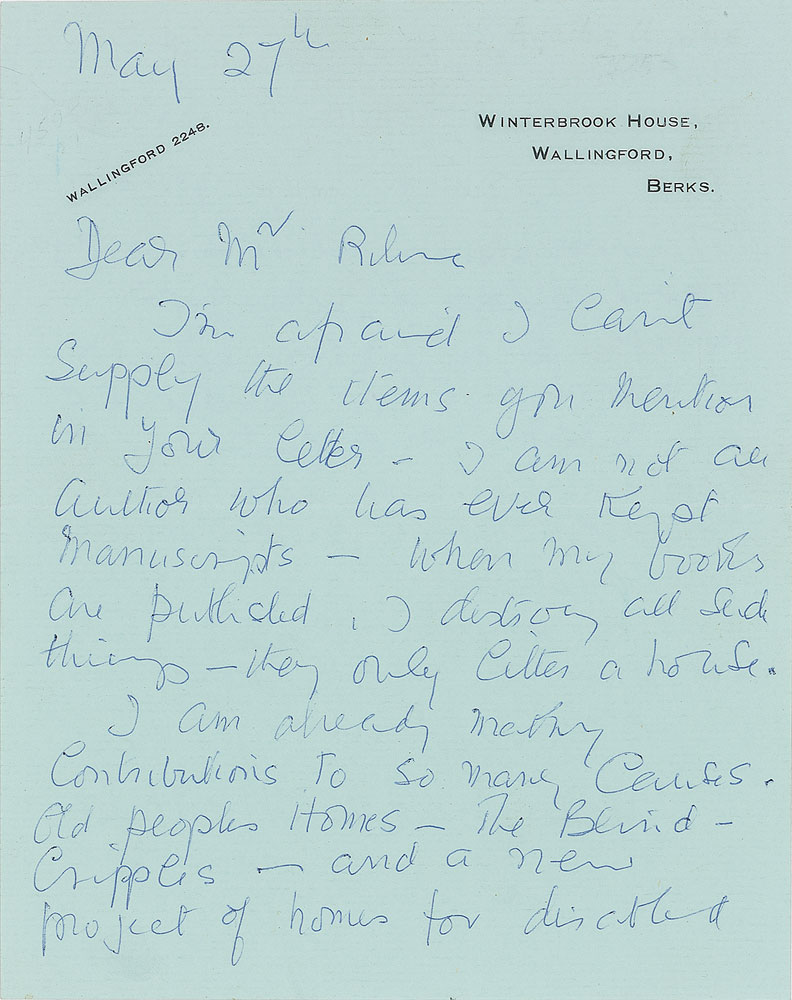 May 27th
WALLINGFORD 2248.
WINTERBROOK HOUSE,
WALLINGFORD,
BERKS.
Dear Mr
I'm afraid I can't
Supply the items you mention
in your letter - I am not an
author who has ever kept
manuscripts - when my books
are published, I destroy all such
things - they only litter a house.
I am already making
Contributions to so many Causes.
Old peoples Homes - The Blind -
Cripples - and a new
project of homes for disabled